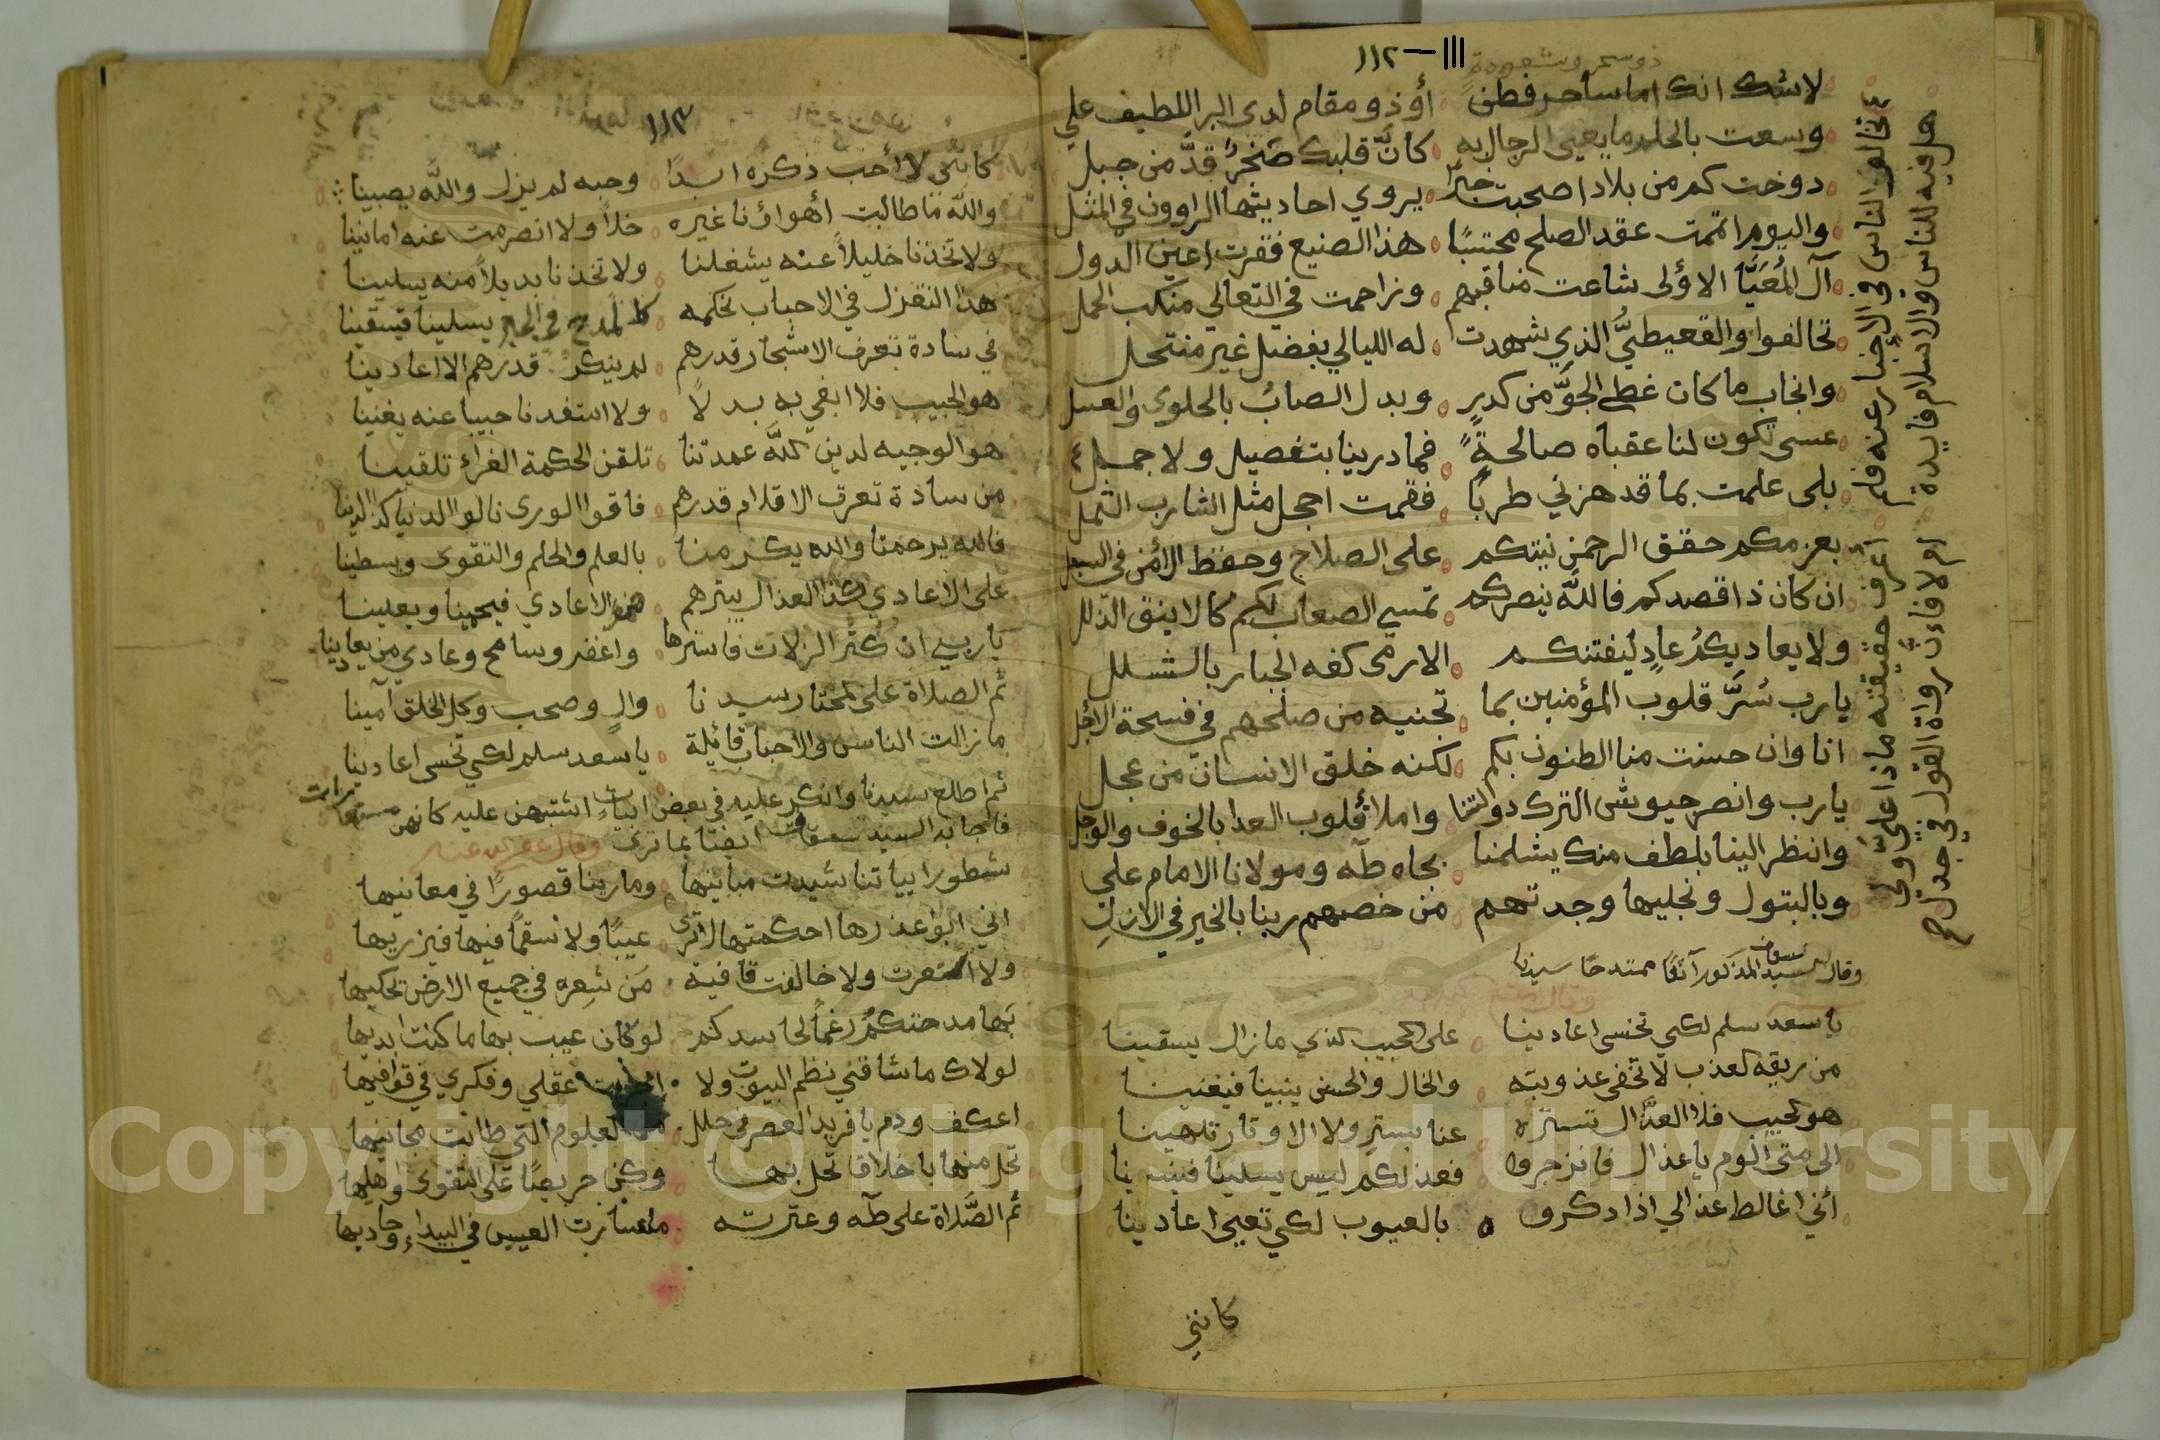 ١١٢
ذو سحر وشعوذة
لا شك انك اما ساحر فطن أو ذو مقام لدى البر اللطيف علي
وسعت بالحلم ما يعيى الرجال به كأنّ قلبك صخرٌ قدّ من جبل
دوخت كم من بلاد اصحبت يروي احاديثها الراوون في المثل
واليوم اتممت عقد الصلح محتسبًا هذا الصنيع فقرت اعين الدول
آل المُعَيَّا الاؤلى شاعت مناقبهم وزاحمت في التعالي منكب الحمل
تحالفوا والقعيطيُّ الذي شهدت له الليالي بفضل غير منتحل
وانجاب ما كان غطى الجوَّ من كدرٍ وبدل الصابُ بالحلوى والعسل
عسى تكون لنا عقباه صالحةً فما درينا بتفصيل ولا جمل
بلى علمت بما قد هزني طربًا فقمت احجل مثل الشارب الثمل
بعزمكم حقق الرحمن نيتكم على الصلاح وحفظ الأمن في السبل
ان كان ذا قصدكم فالله ينصركم تمسي الصعاب لكم كالاينق الذلل
ولا يعاديكمُ عادٍ ليفتنكم الا رمى كفه الجبار بالشلل
يارب سُرَّ قلوب المؤمنين بما تجنيه من صلحهم في فسحة الأجل
انا وان حسنت منا الظنون بكم لكنه خلق الانسان من عجل
يارب وانصر جيوش الترك دولتنا واملأ قلوب العدا بالخوف والوجل
وانظر الينا بلطف منك يشملنا بجاه طه ومولانا الامام علي
وبالبتول ونجليها وجدتهم من خصهم ربنا بالخير في الازل
تخالف الناس في الاخبار عنه فلم اعرف حقيقته ماذا علي ولي
هل فيه للناس والاسلام فايدة ام لا فإن رواة القول في جدل
وقال السيد سقاف المذكور آنفا ممتدحا سيدنا
يا سعد سلم لكي تخسى اعادينا على الحبيب الذي مازال يسقينا
من ريقه العذب لا تخفى عذوبته والخال والحسن ينبينا فيغنينا
هو الحبيب فلا العذّال تستره عنا بستر ولا الاوتار تلهينا
الى متى اللوم يا عذال فانزجروا فعذلكم ليس يسلينا فينسينا
أني اغالط عذالي اذا ذكروا بالعيوب لكي تعيى اعادينا
كانني
١١٣
كانني لا أحب ذكره ابدًا وحبه لم يزل والله يصبينا
والله ما طالبت أهواؤنا غيره خلاً ولا انصرمت عنه امانينا
ولا تخذنا خليلاً عنه يشغلنا ولا تخذنا بديلاً منه يسلينا
هذا التغزل في الاحباب نحكمه كالمدح في يسلينا فيسقينا
في سادة تعرف الاشجار قدرهم لم ينكر قدرهم الا اعادينا
هو الحبيب فلا ابغي به بدلاً ولا استفدنا حبيبا عنه يغنينا
هو الوجيه لدين الله عمدتنا تلقن الحكمة الغراء تلقينا
من سادة تعرف الاقلام قدرهم فاقوا الورى نالوا الدنيا كذا الدينا
فالله يرحمنا والله يكرمنا بالعلم والحلم والتقوى ويعطينا
على الاعادي كذا العذال يبترهم الاعادي فيحمينا ويعلينا
يارب ان كثر الزلات فاسترها واغفر وسامح وعادي من يعادينا
ثم الصلاة على المختار سيدنا والٍ وصحب وكل الخلق آمينا
ما زالت الناس والاحباب قائلة يا سعد سلم لكي تخسى اعادينا
ثم اطلع سيدنا وانكر عليه في بعض ابيات اشتبهن عليه كانهن مستعارات
فاجابه السيد سقاف ايضا بما ترى
شطور ابياتنا شيدت مبانيها وما رينا قصورًا في معانيها
اني ابو عذرها احكمتها لا ترى عيبًا ولا سقمًا فيها فيزريها
ولا استعرت ولا خالفت قافية مَن شِعره في جميع الارض تحكيها
بها مدحتكمُ رغمًا لحاسدكم لو كان عيب بها ما كنت ابديها
لولاك ما شاقني نظم البيوت ولا عقلي وفكري في قوافيها
اعكف ودم يا فريد العصر في حلل من العلوم التي طابت مجانيها
تحل منها باخلاقا تحل بها وكن حريصًا على التقوى واهليها
ثم الصَّلاة على طه وعترته ما سايرت العيس في البيداء حاديها
Copyright © King Saud University